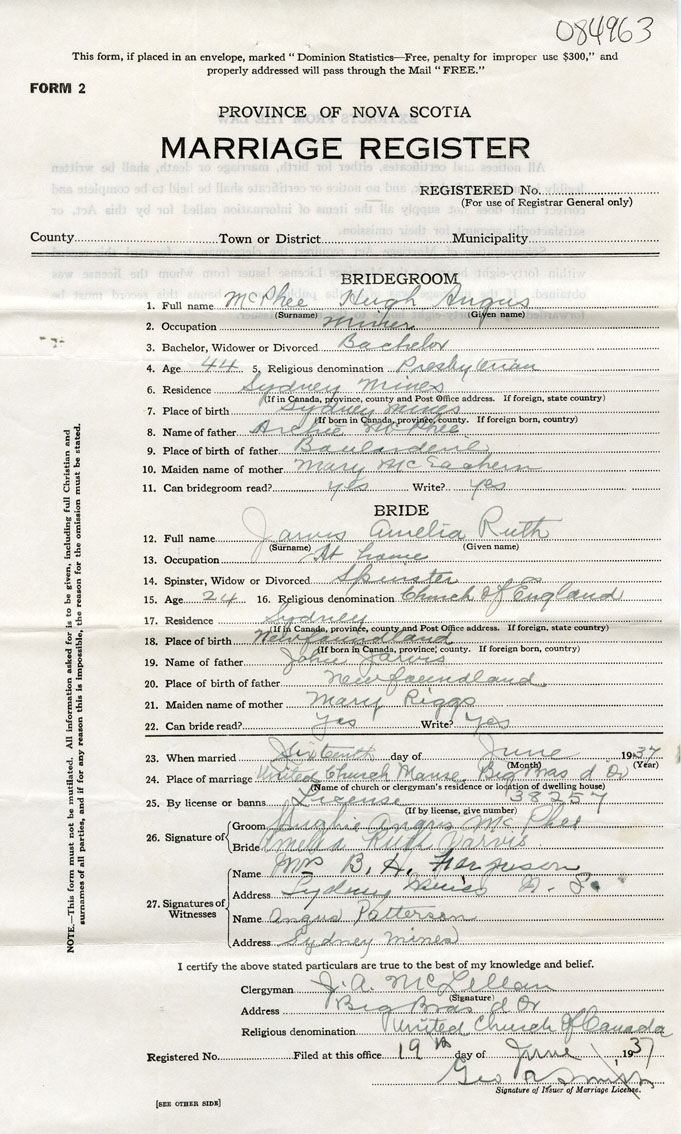 084963
This form, if placed in an envelope, marked "Dominion Statistics—Free, penalty for improper use $300," and
properly addressed will pass through the Mail "FREE."
FORM 2
PROVINCE OF NOVA SCOTIA
MARRIAGE REGISTER
REGISTERED No.
(For use of Registrar General only)
County Town or District Municipality
BRIDEGROOM
1. Full name McPhee Hugh Angus
(Surname) (Given name)
2. Occupation Miner
3. Bachelor, Widower or Divorced Bachelor
4. Age 44 5. Religious denomination Presbyterian
6. Residence Sydney Mines
(If in Canada, province, county and Post Office address. If foreign, state country)
7. Place of birth Sydney Mines
(If born in Canada, province, county. If foreign born, country)
8. Name of father Archie McPhee
9. Place of birth of father
10. Maiden name of mother Mary McEachern
11. Can bridegroom read? yes Write? yes
BRIDE
12. Full name Jarvis Amelia Ruth
(Surname) (Given name)
13. Occupation At home
14. Spinster, Widow or Divorced Spinster
15. Age 24 16. Religious denomination Church of England
17. Residence Sydney
(If in Canada, province, county and Post Office address. If foreign, state country)
18. Place of birth Newfoundland
(If born in Canada, province, county. If foreign born, country)
19. Name of father John Jarvis
20. Place of birth of father Newfoundland
21. Maiden name of mother Mary Riggs
22. Can bride read? Yes Write? Yes
23. When married Sixteenth day of June 1937
(Month) (Year)
24. Place of marriage United Church Manse, Big Bras d Or
(Name of church or clergyman's residence or location of dwelling house)
25. By license or banns License 38257
(If by license, give number)
26. Signature of
Groom Hughie Angus McPhee
Bride Amelia Ruth Jarvis
27. Signatures of Witnesses
Name Mrs B. H. Ferguson
Address Sydney Mines N. S.
Name Angus Patterson
Address Sydney Mines
NOTE.—This form must not be mutilated. All information asked for is to be given, including full Christian and
surnames of all parties, and if for any reason this is impossible, the reason for the omission must be stated.
I certify the above stated particulars are true to the best of my knowledge and belief.
Clergyman J. A. McLellan
(Signature)
Address Big Bras d Or
Religious denomination United Church of Canada
Registered No. Filed at this office 19th day of June 1937
Geo
Signature of Issuer of Marriage License.
[SEE OTHER SIDE]